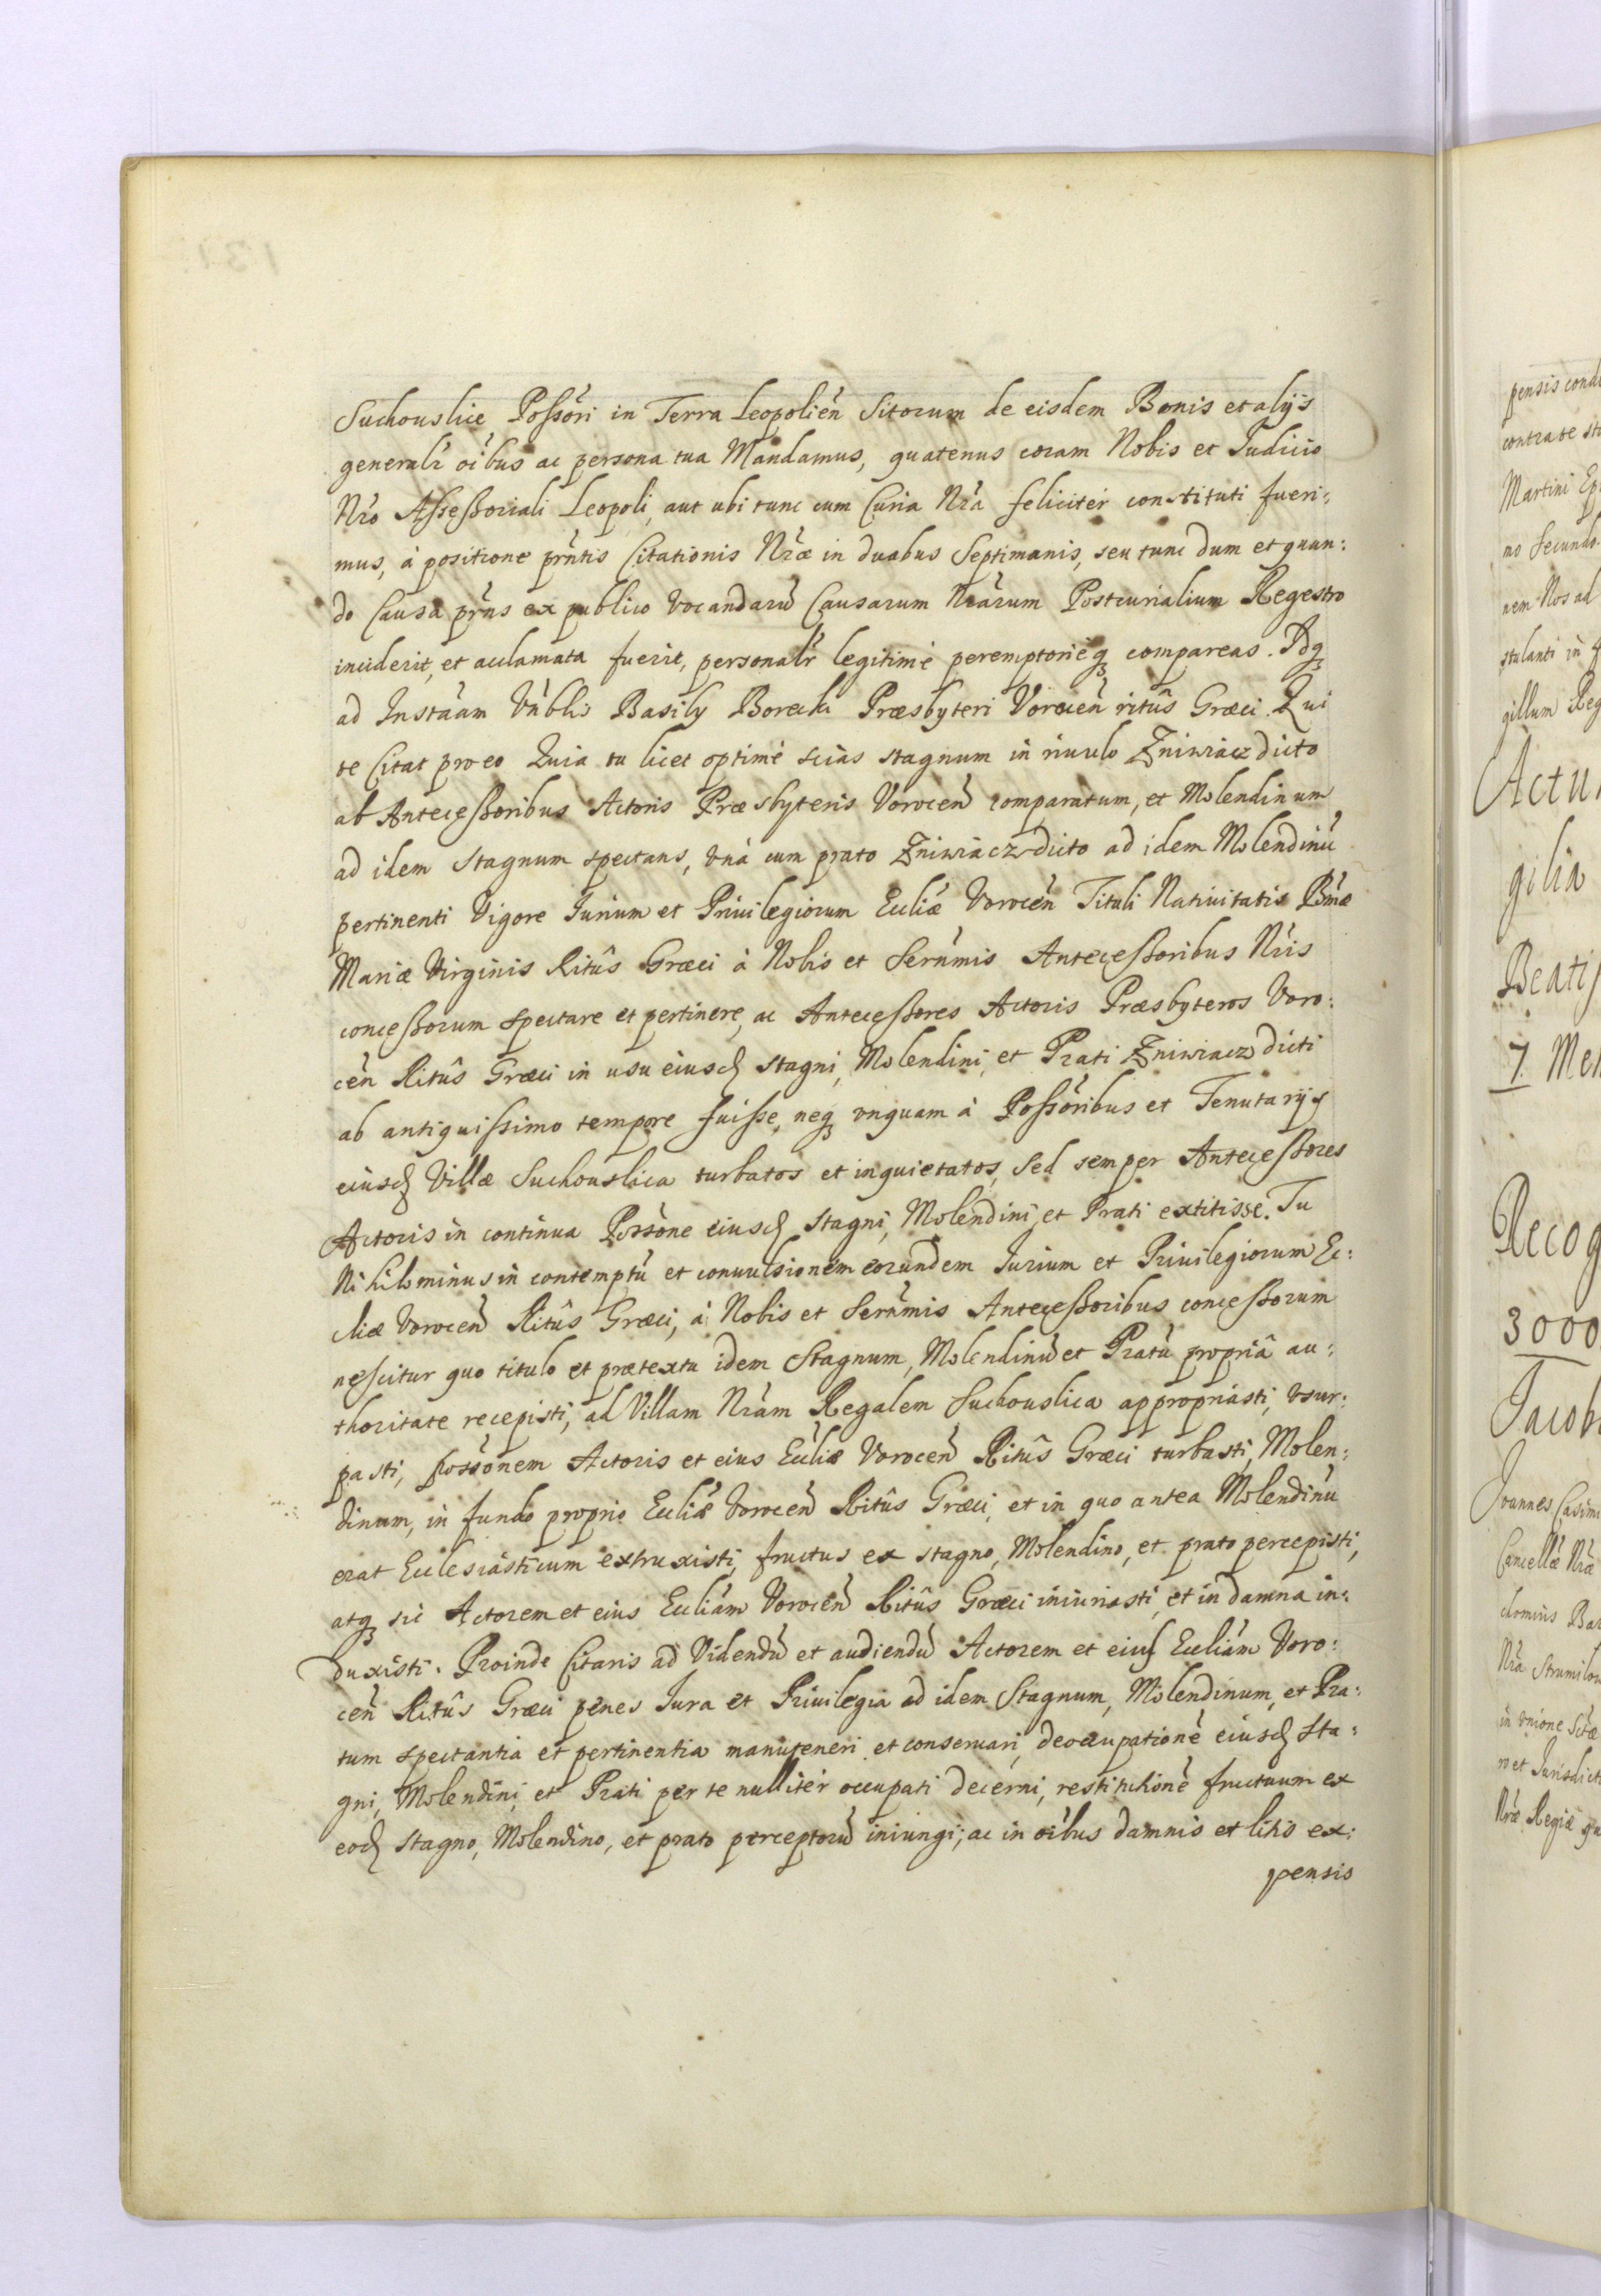 Suchouslice Possõri in Terra Leopolień Sitorum de eisdem Bonis et alijs
generalr oibus ac persona tua Mandamus, quatenus coram Nobis et Judicio
Nro Assessoriali Leopoli, aut ubi tunc cum Curia Nra feliciter constituti fueri:
mus, à positione prntis Citationis Nræ in duabus Septimanis, seu tunc dum et quan:
do Causa prns ex publico vocandarũ Causarum Nrarum Postcurialium Regestro
inciderit, et acclamata fuerit, personalr legitimè peremptorièq compareas. Idq
ad Instãam Vnblis Basilij Borecki Præsbyteri Vorocen ritûs Græci. Qui
te Citat pro eo Quia tu licet optimè scias stagnum in riuulo Zniwiacz dicto
ab Antecessoribus Actoris Præsbyteris Vorocen comparatum, et Molendinum
ad idem stagnum spectans, vnà cum prato Zniwiacz dicto ad idem Molendinũ
pertinenti Vigore Jurium et Priuilegiorum Eccliæ Vorocen Tituli Natiuitatis Bmæ
Mariæ Virginis Ritûs Græci à Nobis et Serñmis Antecessoribus Nris
concessorum spectare et pertinere, ac Antecessores Actoris Præsbyteros Voro:
cen Ritûs Græci in usu eiusd stagni, Molendini, et Prati Zniwiacz dicti
ab antiquissimo tempore fuisse, neq vnquam à Possõribus et Tenutarijs
eiusd Villæ Suchouslica turbatos et inquietatos, sed semper Antecessores
Actoris in continua Possõne eiusd stagni, Molendini, et Prati extitisse. Tu
Nihilominus in contemptũ et conuulsionem eorundem Jurium et Priuilegiorum Ec:
cliæ Vorocen Ritûs Græci, à Nobis et Serñmis Antecessoribus concessorum
nescitur quo titulo et prætextu idem Stagnum, Molendinũ et Pratũ propriâ au:
thoritate recepisti, ad Villam Nram Regalem Suchouslica appropriasti, vsur:
pasti, possõnem Actoris et eius Eccliæ Vorocen Ritûs Græci turbasti, Molen:
dinum, in fundo proprio Eccliæ Vorocen Ritûs Græci, et in quo antea Molendinũ
erat Ecclesiasticum extruxisti, fructus ex stagno, Molendino, et prato percepisti,
atq sic Actorem et eius Eccliam Vorocen Ritûs Græci iniuriasti, et in damna in:
duxisti. Proinde Citaris ad Videndũ et audiendũ Actorem et eius Eccliam Voro:
cen Ritûs Græci penes Jura et Priuilegia ad idem Stagnum, Molendinum, et Pra:
tum spectantia et pertinentia manuteneri et conseruari, deoccupationẽ eiusd Sta:
gni, Molendini, et Prati per te nulliter occupati decerni, restitutionẽ fructuum ex
eod stagno, Molendino, et prato perceptorũ iniungi; ac in oibus damnis et litis ex:
pensis
pensis
contra te
Martini
no Secundo
nem Nos ad
stulanti in
gillum Reg
Actu
gilia
Beatis
7 Men
Recog
3000
Jacob
Joannes Casim
Cancellæ Nræ
Nra Strumilo
in vnione
ro et Jurisdict
Nræ Regiæ